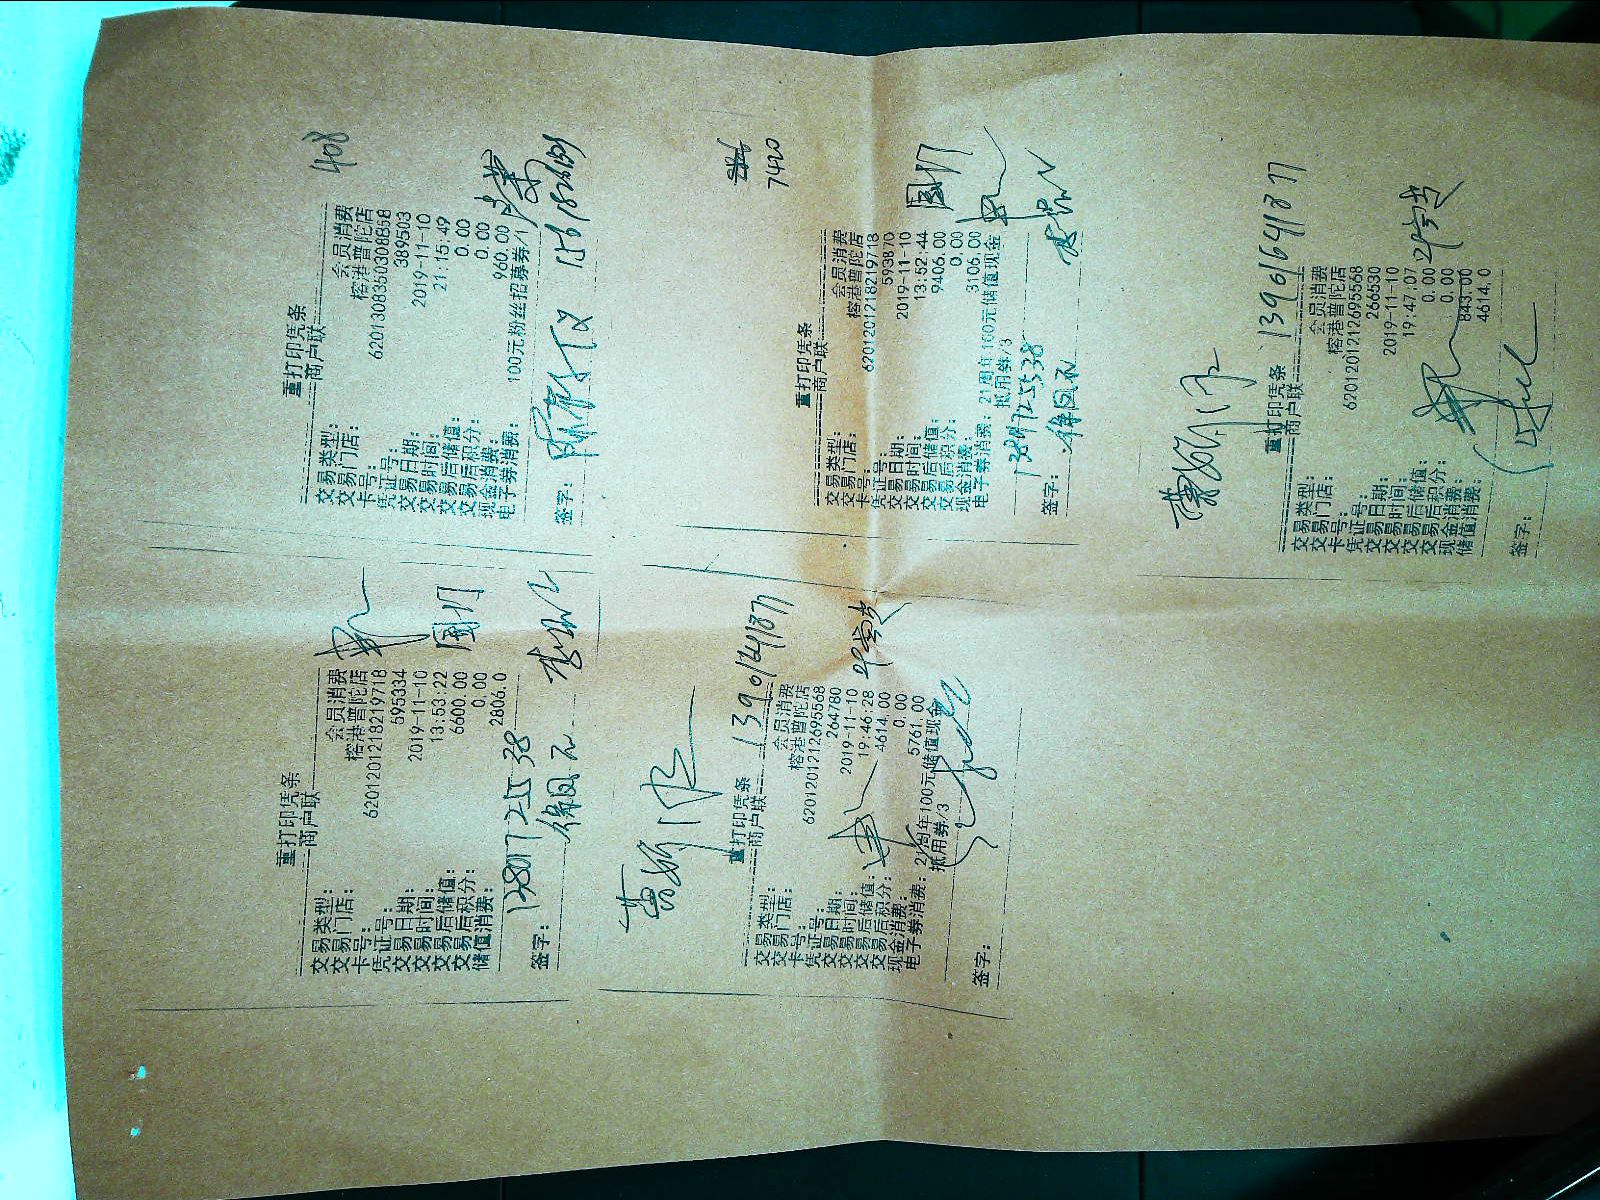 408
重打印凭条
商户联
交易类型: 会员消费
交易门店: 榕港普陀店
卡号: 6201308350308858
凭证号: 389503
交易日期: 2019-11-10
交易时间: 21:15:49
交易后储值: 0.00
交易后积分: 0.00
现金消费: 960.00
电子券消费: 100元粉丝招募券/1
签字:
7420
重打印凭条
商户联
交易类型: 会员消费
交易门店: 榕港普陀店
卡号: 6201201218219718
凭证号: 593870
交易日期: 2019-11-10
交易时间: 13:52:44
交易后储值: 9406.00
交易后积分: 0.00
现金消费: 3106.00
电子券消费: 21周年100元储值现金
抵用券/3
13817725538
签字: 徐国永
13901641877
重打印凭条
商户联
交易类型: 会员消费
交易门店: 榕港普陀店
卡号: 6201201212695568
凭证号: 266530
交易日期: 2019-11-10
交易时间: 19:47:07
交易后储值: 0.00
交易后积分: 0.00
现金消费: 843.00
储值消费: 4614.0
签字:
重打印凭条
商户联
交易类型: 会员消费
交易门店: 榕港普陀店
卡号: 6201201218219718
凭证号: 595334
交易日期: 2019-11-10
交易时间: 13:53:22
交易后储值: 6600.00
交易后积分: 0.00
储值消费: 2806.0
13801725538
签字: 徐国永
重打印凭条
商户联
交易类型: 会员消费
交易门店: 榕港普陀店
卡号: 6201201212695568
凭证号: 264780
交易日期: 2019-11-10
交易时间: 19:46:28
交易后储值: 4614.00
交易后积分: 0.00
现金消费: 5761.00
电子券消费: 21周年100元储值现金
抵用券/3
签字: